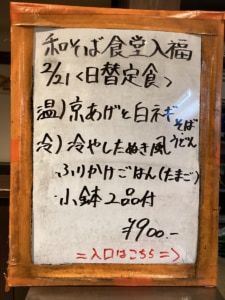 和そば食堂入福
2/21<日替定食>
温)京あげと白ネギ
そば
うどん
冷)冷やしたぬき風
ふりかけごはん(たまご)
小鉢2品付
¥900.-
=入口はこちら=>